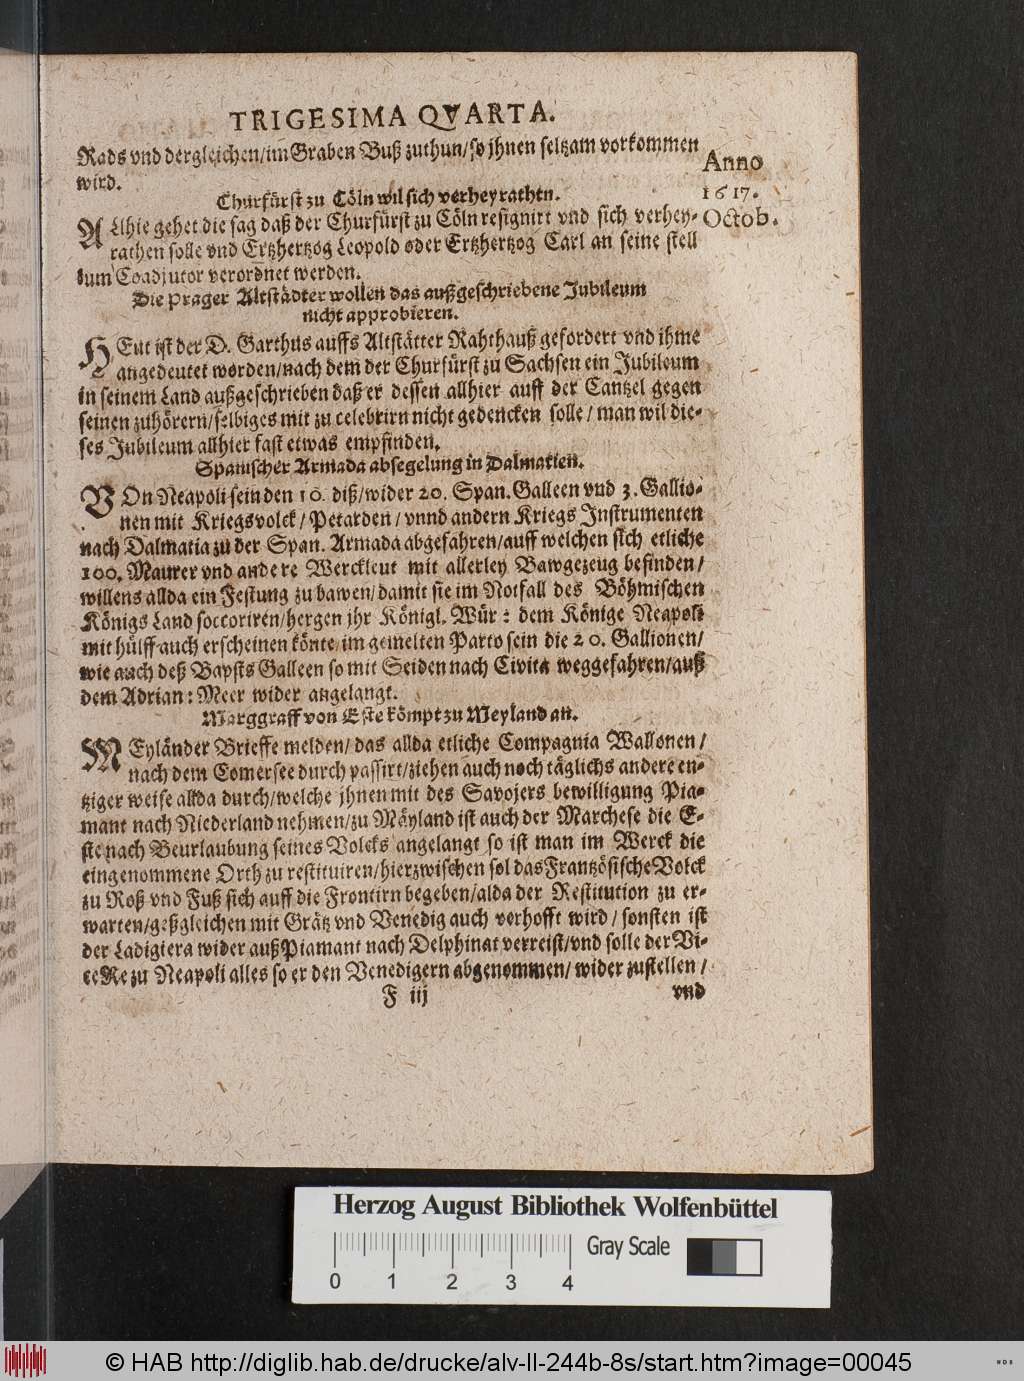 TRIGESIMA QVARTA.
Rads vnd dergleichen/im Graben Buß zuthun/so jhnen seltzam vorkommen
wird.
Anno
1617.
Octob.
Churfürst zu Cöln wil sich verheyrathen.
ALlhie gehet die sag daß der Churfürst zu Cöln resignirt vnd sich verhey-
rathen solle vnd Ertzhertzog Leopold oder Ertzhertzog Carl an seine stell
zum Coadjutor verordnet werden.
Die Prager Altstädter wollen das außgeschriebene Jubileum
nicht approbieren.
HEut ist der D. Garthus auffs Altstätter Rahthauß gefordert vnd jhme
angedeutet worden/nach dem der Churfürst zu Sachsen ein Jubileum
in seinem Land außgeschrieben daß er dessen allhier auff der Cantzel gegen
seinen zuhörern/selbiges mit zu celebrirn nicht gedencken solle/man wil die-
ses Jubileum allhier fast etwas empfinden.
Spanischer Armada absegelung in Dalmatien.
VOn Neapoli sein den 10. diß/wider 20. Span. Galleen vnd 3. Gallio-
nen mit Kriegsvolck/Petarden/vnnd andern Kriegs Instrumenten
nach Dalmatia zu der Span. Armada abgefahren/auff welchen sich etliche
100. Maurer vnd andere Werckleut mit allerley Bawgezeug befinden/
willens allda ein Festung zu bawen/damit sie im Notfall des Böhmischen
Königs Land soccoriren/hergen jhr Königl. Wür: dem Könige Neapoli
mit hülff auch erscheinen könte/im gemelten Parto sein die 20. Gallionen/
wie auch deß Bapsts Galleen so mit Seiden nach Civita weggefahren/auß
dem Adrian: Meer wider angelangt.
Marggraff von Este kömpt zu Meyland an.
MEyländer Brieffe melden/das allda etliche Compagnia Wallonen/
nach dem Comersee durch passirt/ziehen auch noch täglichs andere en-
tziger weise allda durch/welche jhnen mit des Savojers bewilligung Pia-
mant nach Niederland nehmen/zu Mäyland ist auch der Marchese die E-
ste nach Beurlaubung seines Volcks angelangt so ist man im Werck die
eingenommene Orth zu restituiren/hierzwischen sol das Frantzösische Volck
zu Roß vnd Fuß sich auff die Frontirn begeben/alda der Restitution zu er-
warten/geßgleichen mit Grätz vnd Venedig auch verhofft wird/sonsten ist
der Ladigiera wider auß Piamant nach Delphinat verreist/vnd solle der Vi-
ceRe zu Neapoli alles so er den Venedigern abgenommen/wider zustellen/
F iij
vnd
Herzog August Bibliothek Wolfenbüttel
Gray Scale
0 1 2 3 4
© HAB http://diglib.hab.de/drucke/alv-ll-244b-8s/start.htm?image=00045